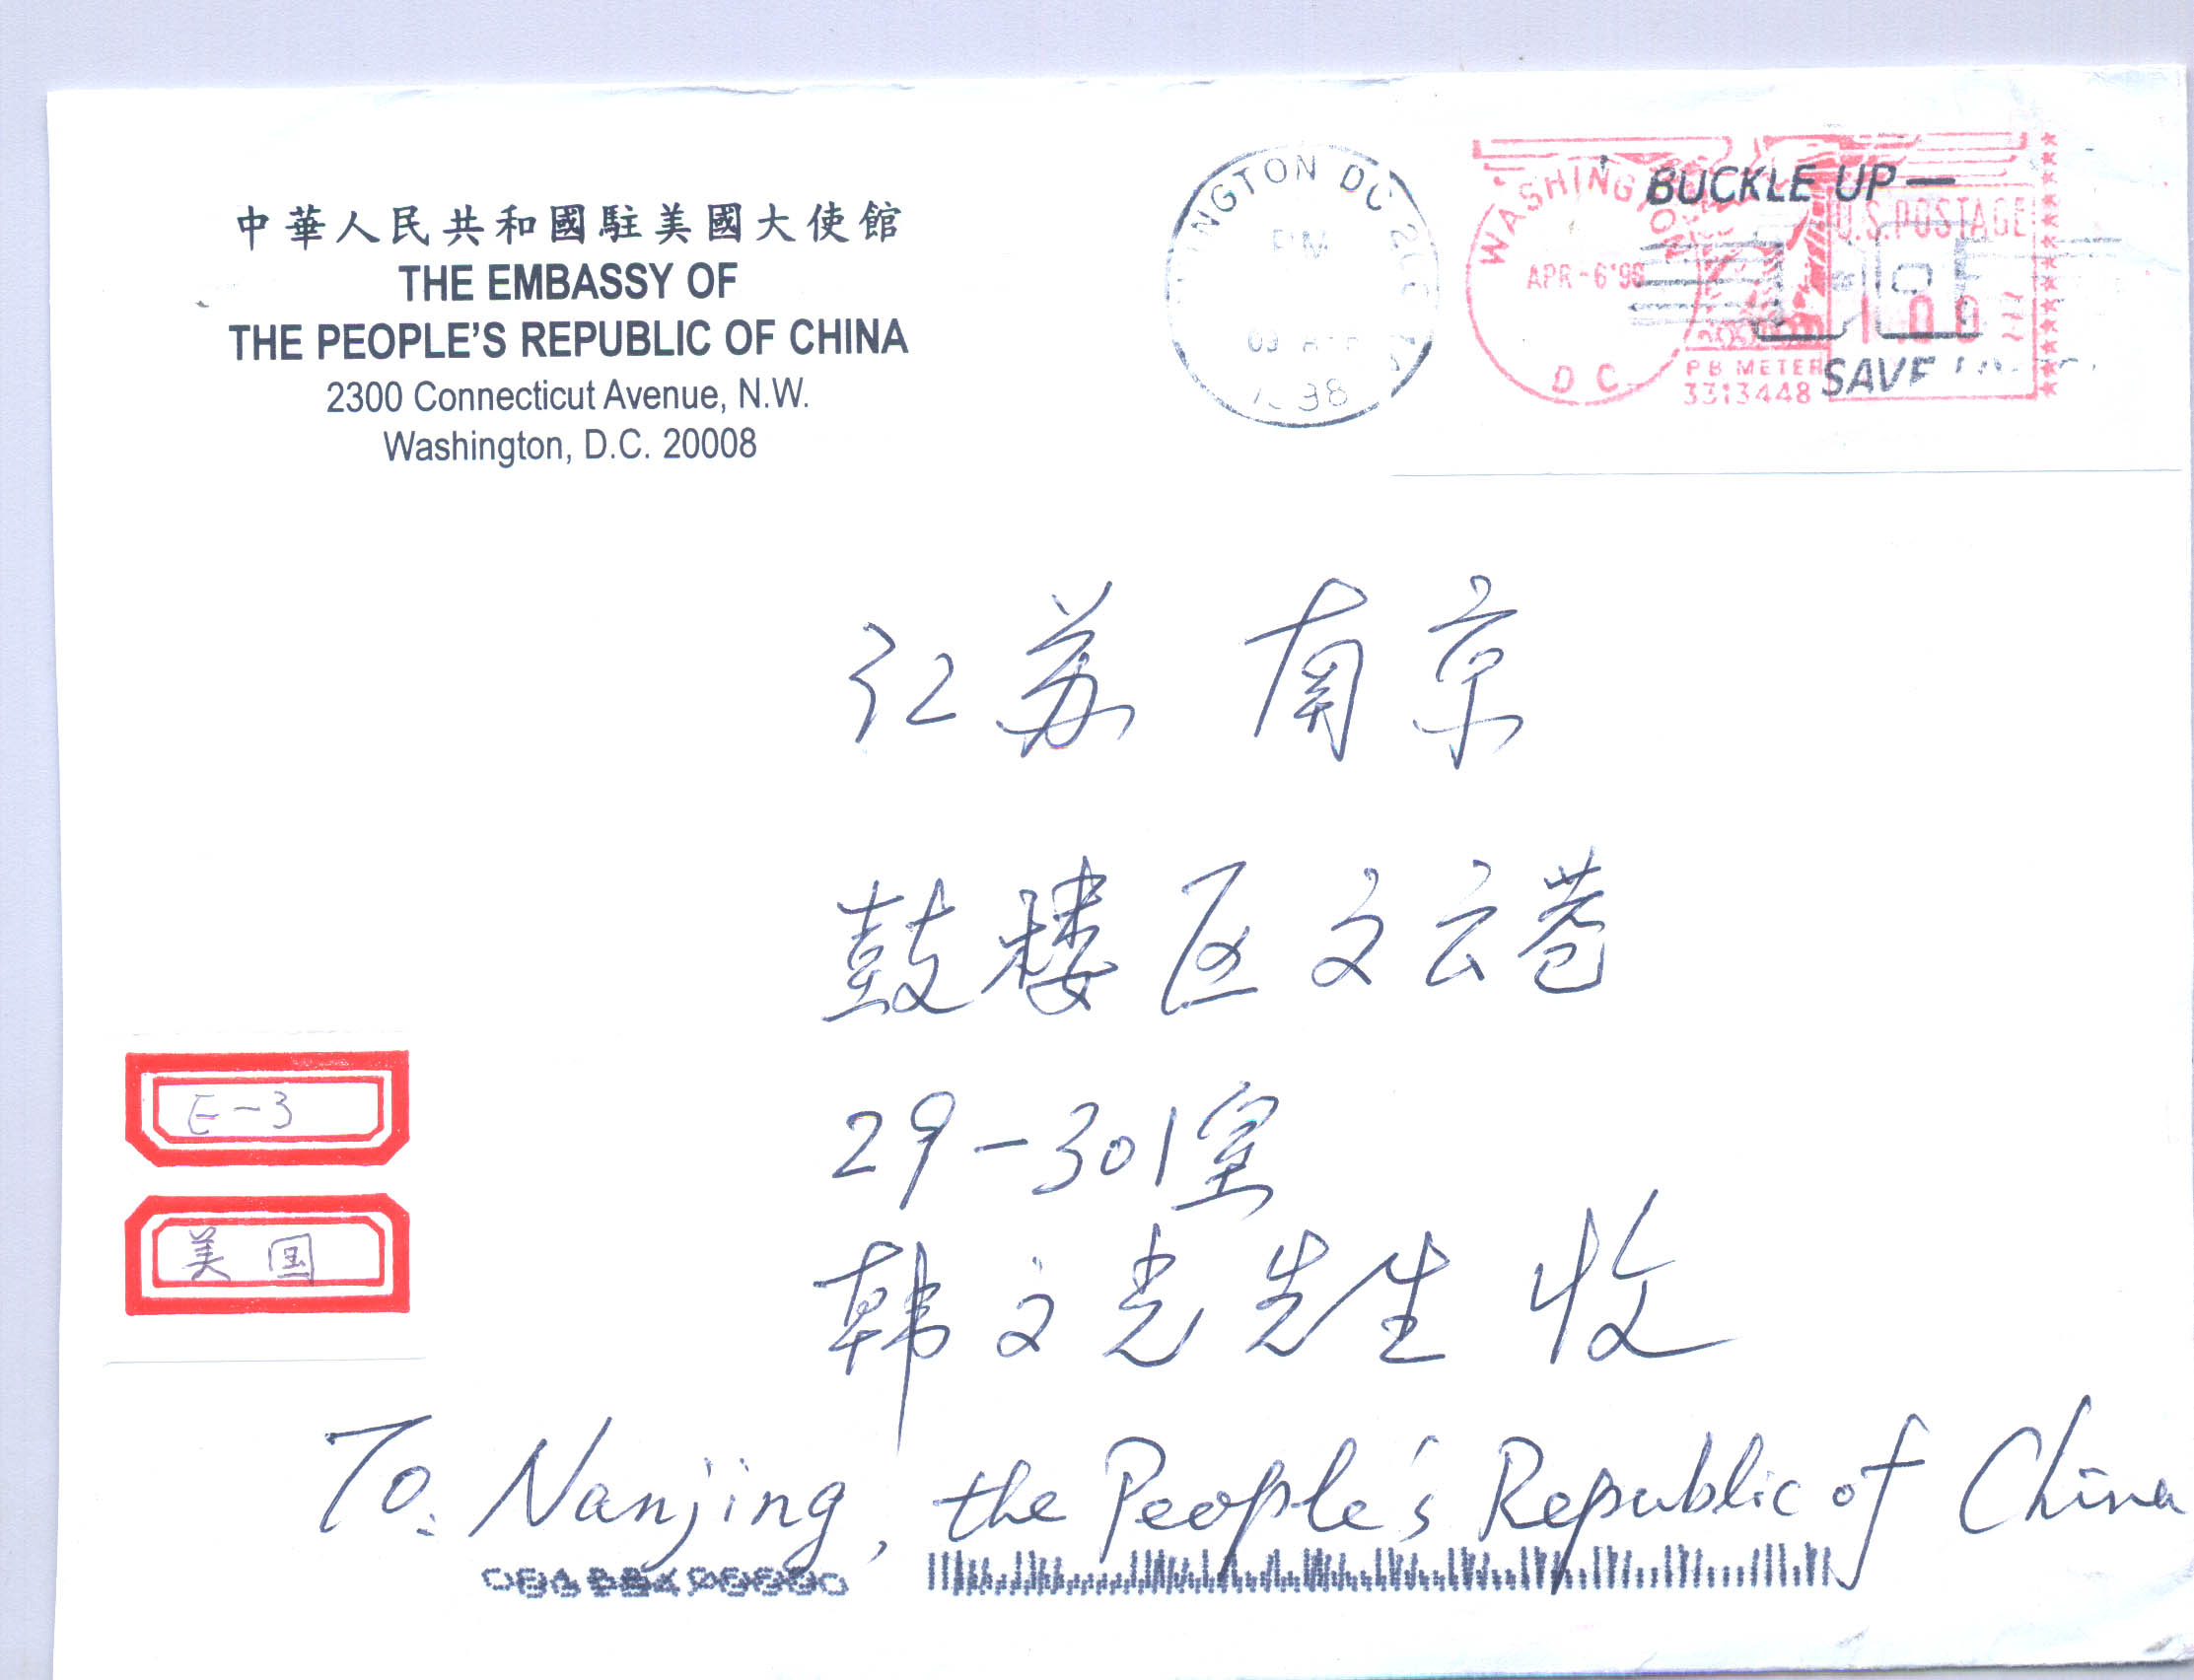 中華人民共和國駐美國大使館
THE EMBASSY OF
THE PEOPLE'S REPUBLIC OF CHINA
2300 Connecticut Avenue, N.W.
Washington, D.C. 20008
INGTON DC
PM
WASHINGTON
APR-6'98
D C
BUCKLE UP—
U.S. POSTAGE
1.00
PB METER
3313448
SAVE
江苏 南京
鼓楼区文云巷
29-301室
韩文光先生 收
E-3
美国
To: Nanjing, the People's Republic of China